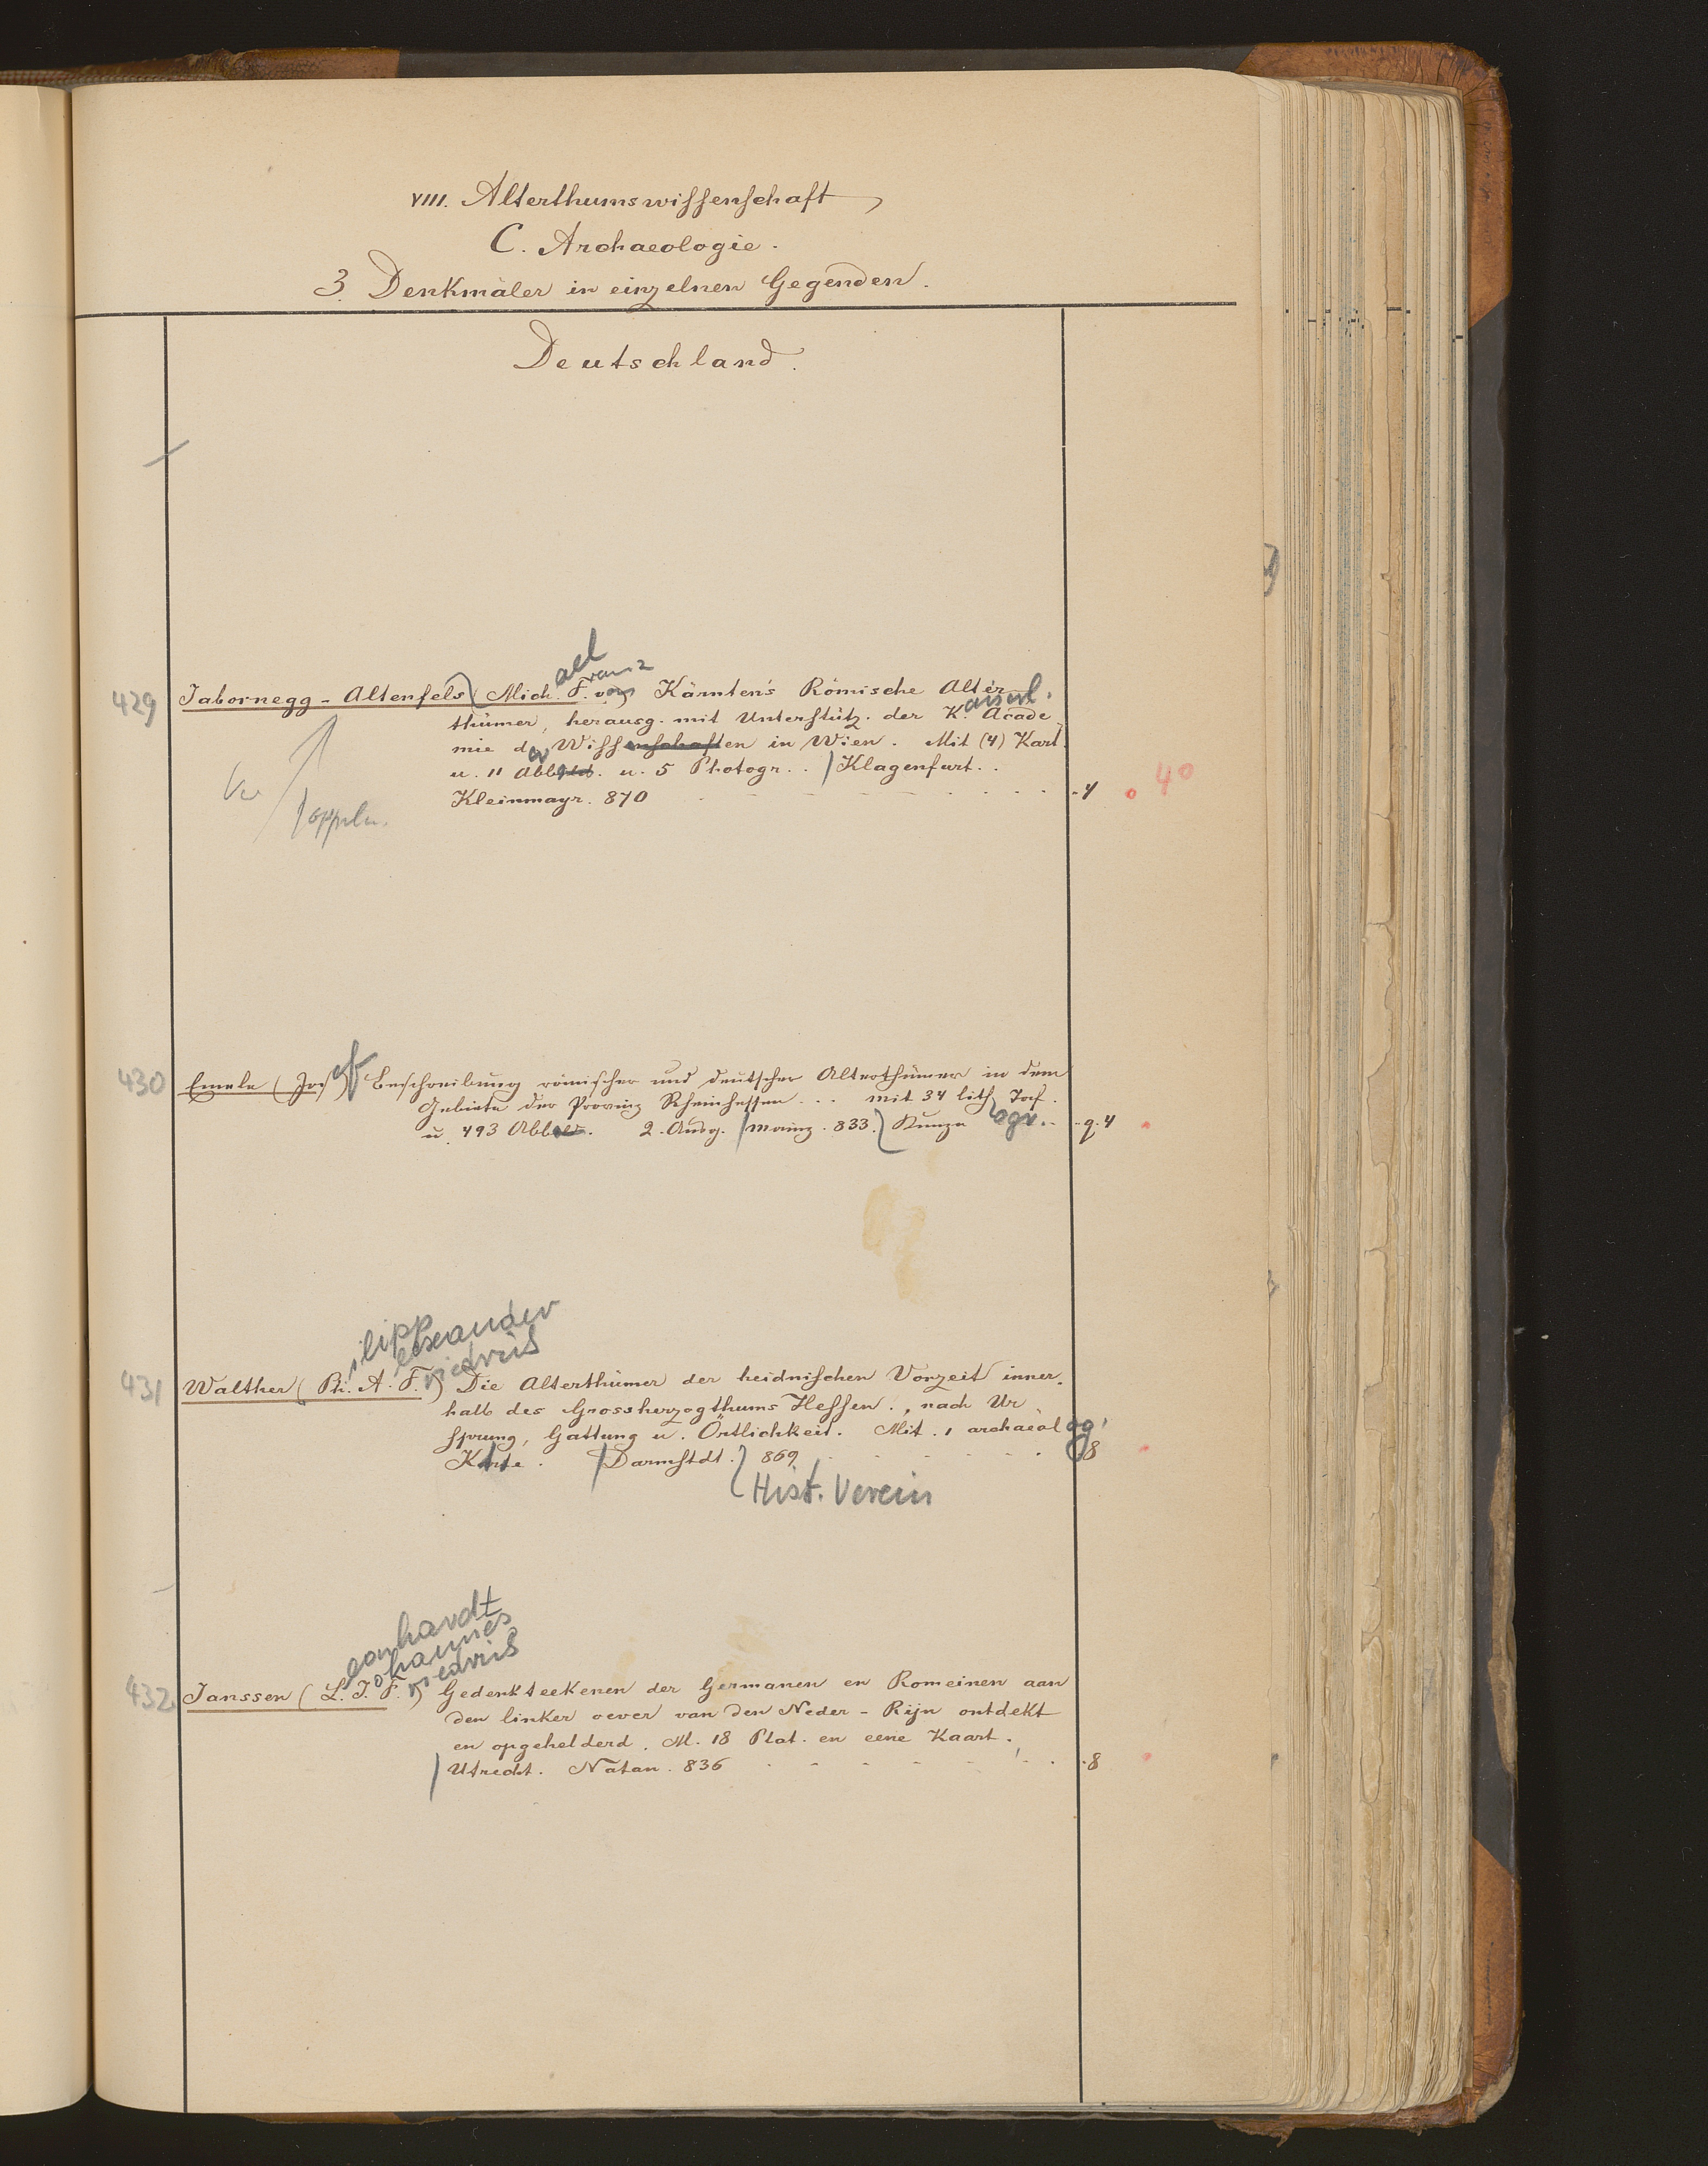 VIII. Alterthumswissenschaft
C. Archaeologie.
3. Denkmäler in einzelnen Gegenden.
Deutschland.
ael ranz
429 Jabornegg-Altenfels (Mich. F. von) Kärnten's Römische Alter
aiserl.
thümer, herausg. mit Unterstütz. der K. Acade
mie der Wissenschaften in Wien. Mit (4) Kart.
u. 11 Abbild. u. 5 Photogr. . / Klagenfurt. .
Kleinmayr. 870 . 4 4°
430 Emele (Josef) Beschreibung römischer und deutscher Alterthümer in dem
Gebiete der Provinz Rheinhessen . . . mit 34 lith. Taf.
ogr.
u. 493 Abbild. 2. Ausg. / Mainz. 833. Kunze q. 4
ilipp
lexander
riedrich
431 Walther (Ph. A. F.) Die Alterthümer der heidnischen Vorzeit inner-
halb des Grossherzogthums Hessen . , nach Ur
sprung, Gattung u. Örtlichkeit. Mit. 1 archaeolog.
Karte. / Darmstdt. 869 8
Hist. Verein
eonhardt
ohannes
riedrich
432 Janssen (L. J. F.) Gedenkteekenen der Germanen en Romeinen aan
den linker oever van den Neder-Rijn ontdekt
en opgehelderd. M. 18 Plat. en eene Kaart.
/ Utrecht. Natan. 836 . 8